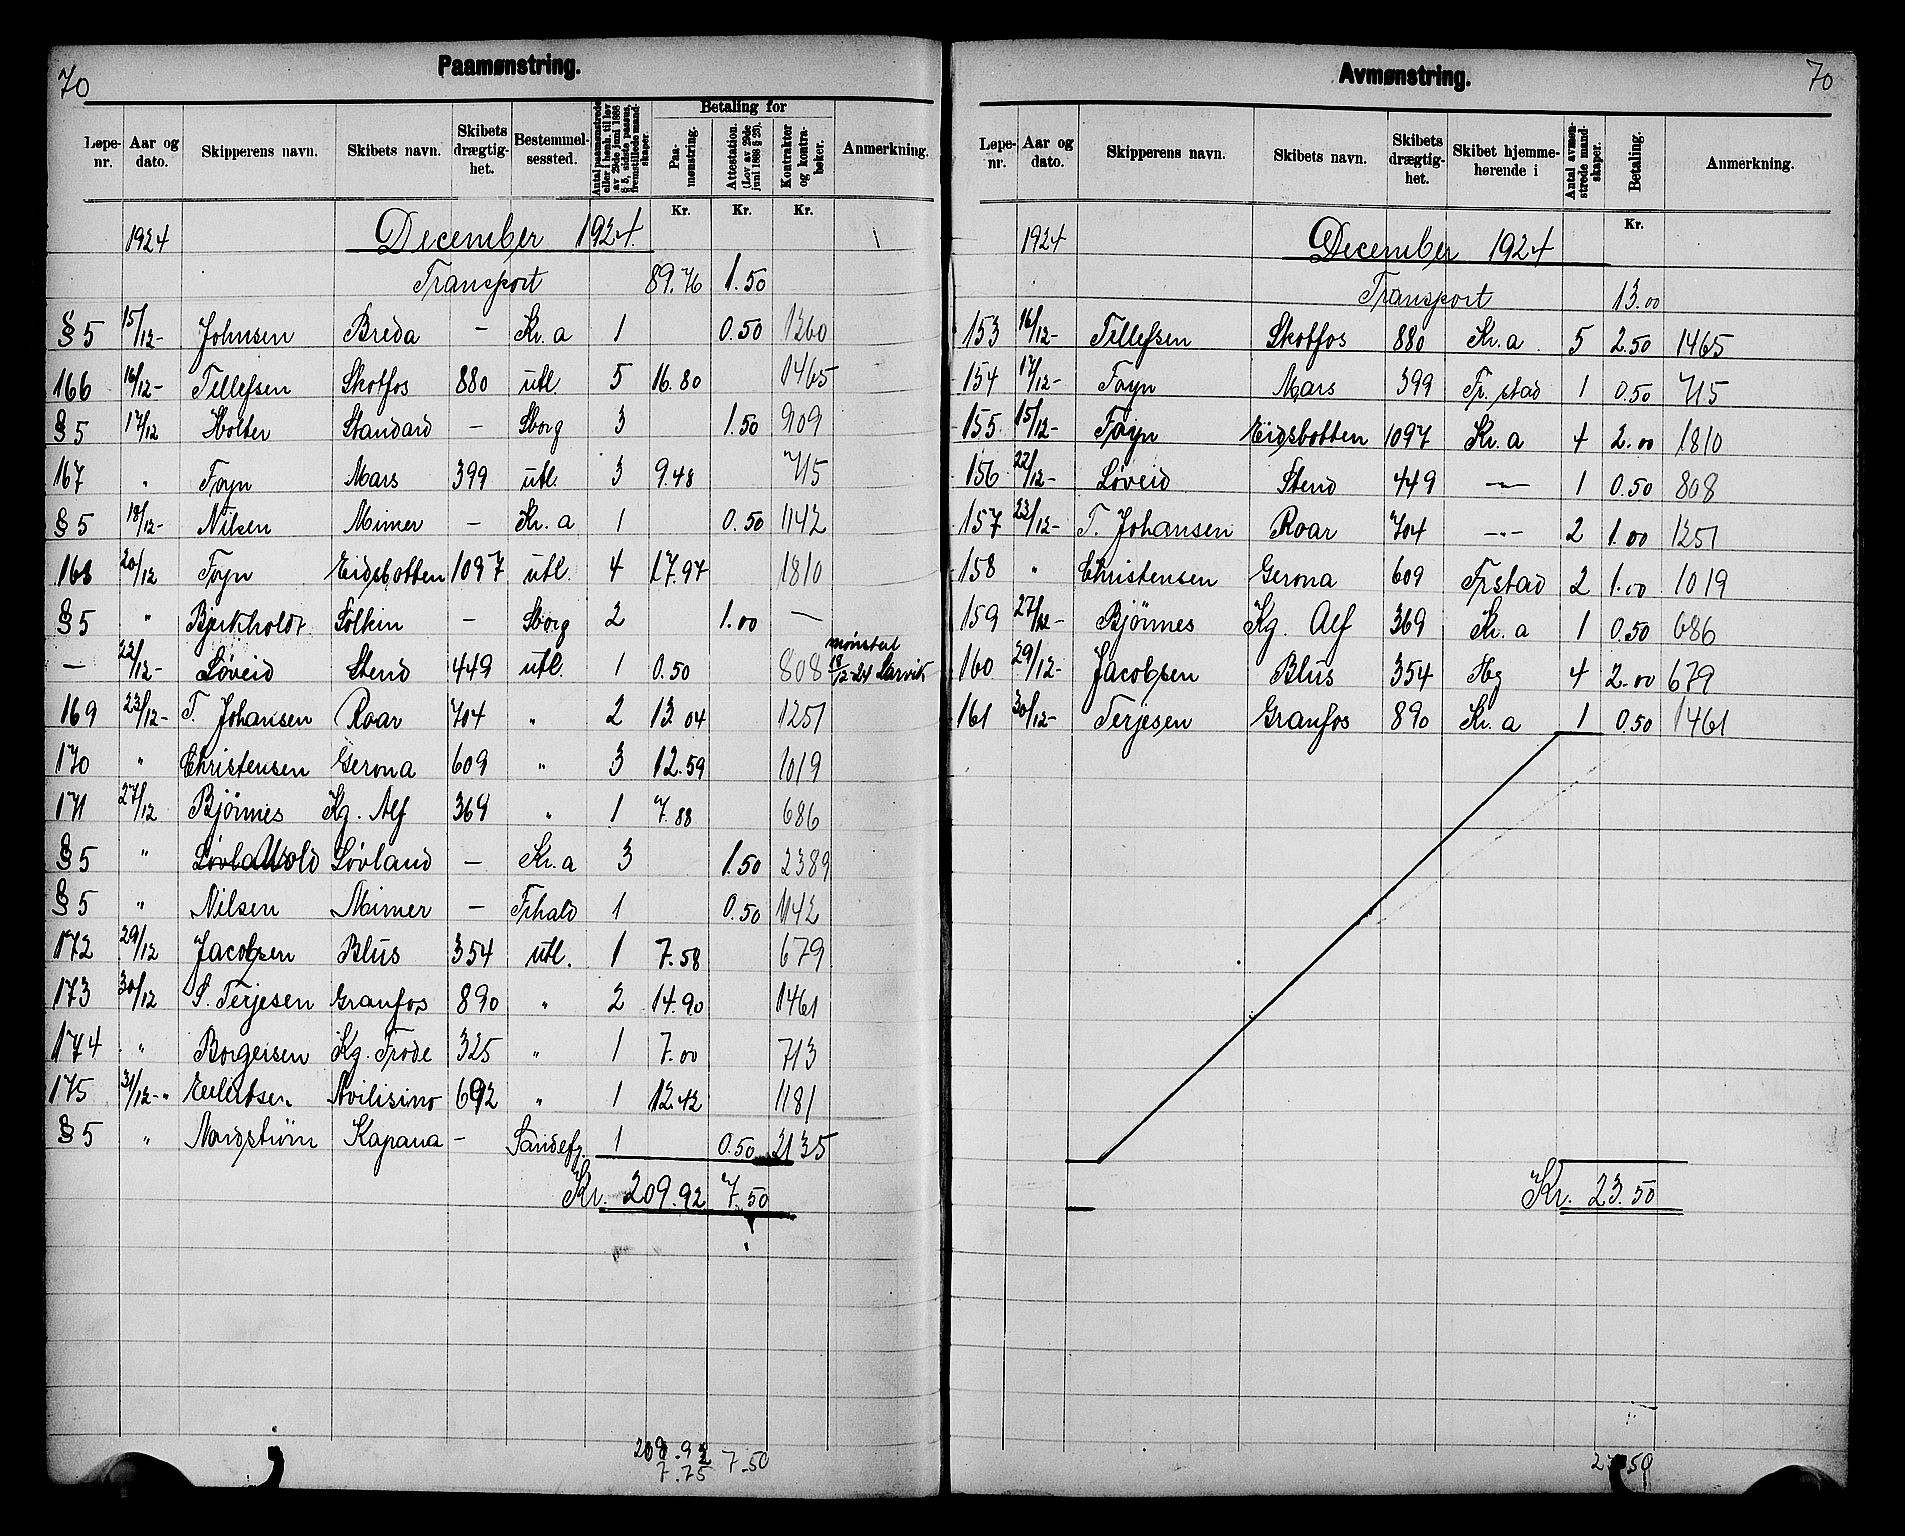 70
Paamønstring.
Løpe-nr. Aar og dato. Skipperens navn. Skibets navn. Skibets drægtig-het. Bestemmel-sessted. Antal paamønstrede eller i henh. til lov av 29de juni 1888 § 5, sidste passus, fremstillede mand-skaper. Betaling for Paa-mønstring. Attestation. (Lov av 29de juni 1888 § 25). Kontrakter og kontra-bøker. Anmerkning.
Kr. Kr. Kr.
1924 December 1924.
Transport 89.76 1.50
§ 5 15/12- Johnsen Breda - Kr.a 1 0.50 1260
166 16/12- Tillefsen Skotfos 880 utl. 5 16.80 1465
§ 5 17/12 Holter Standard - Sborg 3 1.50 909
167 " Foyn Mars 399 utl. 3 9.48 715
§ 5 18/12- Nilsen Mimer - Kr.a 1 0.50 1142
168 20/12 Foyn Eidsbotten 1097 utl. 4 17.94 1810
§ 5 " Bjerkholdt Solkin - Sborg 2 1.00 -
- 22/12- Løveid Stend 449 utl. 1 0.50 808 mønstret 18/12-24 Larvik
169 23/12- T. Johansen Roar 704 " 2 13.04 1251
170 " Christensen Gerona 609 " 3 12.59 1019
171 27/12 Bjönnes Kg. Alf 369 " 1 7.88 686
§ 5 " Wold Lövland - Kr.a 3 1.50 2389
§ 5 " Nilsen Mimer - Frhald 1 0.50 1142
172 29/12 Jacobsen Blus 354 utl. 1 7.58 679
173 30/12 S. Terjesen Granfos 890 " 2 14.90 1461
174 " Borgersen Kg. Frode 325 " 1 7.00 713
175 31/12-" Eilertsen Avilisino 692 " 1 12.42 1181
§ 5 " Nordström Kapana - Sandefj. 1 0.50 2135
Kr. 209.92 7.50
209.92 7.50
7.75
70
Avmønstring.
Løpe-nr. Aar og dato. Skipperens navn. Skibets navn. Skibets drægtig-het. Skibet hjemme-hørende i Antal avmøn-strede mand-skaper. Betaling. Anmerkning.
Kr.
1924 December 1924
Transport 13.00
153 16/12- Tillefsen Skotfos 880 Kr.a. 5 2.50 1465
154 17/12- Foyn Mars 399 Fr.stad 1 0.50 715
155. 15/12- Foyn Eidsbotten 1097 Kr.a 4 2.00 1810
156 22/12- Løveid Stend 449 -"- 1 0.50 808
157 23/12- T. Johansen Roar 704 -"- 2 1.00 1251
158 " Christensen Gerona 609 Frstad 2 1.00 1019
159 27/12- Bjönnes Kg. Alf 369 Kr.a 1 0.50 686
160 29/12- Jacobsen Blus 354 Hg 4 2.00 679
161 30/12- Terjesen Granfos 890 Kr.a 1 0.50 1461
Kr. 23.50